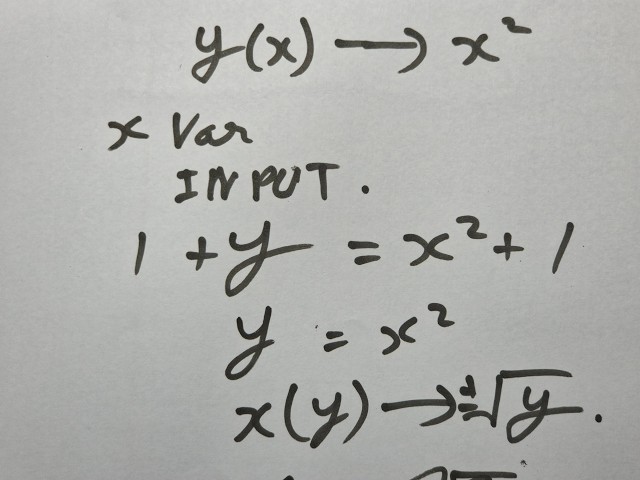 y(x) → x²
x Var
INPUT.
1 + y = x² + 1
y = x²
x(y) → ±√y.